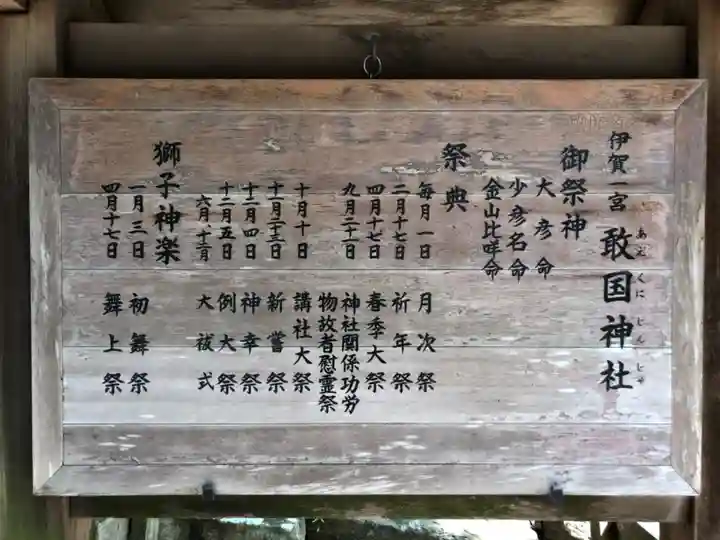 伊賀一宮 敢国神社
あえくにじんじゃ
御祭神
大彦命
少彦名命
金山比咩命
祭典
毎月一日 月次祭
二月十七日 祈年祭
四月十七日 春季大祭
九月二十一日 神社関係功労
物故者慰霊祭
十月十日 講社大祭
十一月二十三日 新嘗祭
十二月四日 神幸祭
十二月五日 例大祭
大祓式
獅子神楽
一月三日 初舞祭
四月十七日 舞上祭